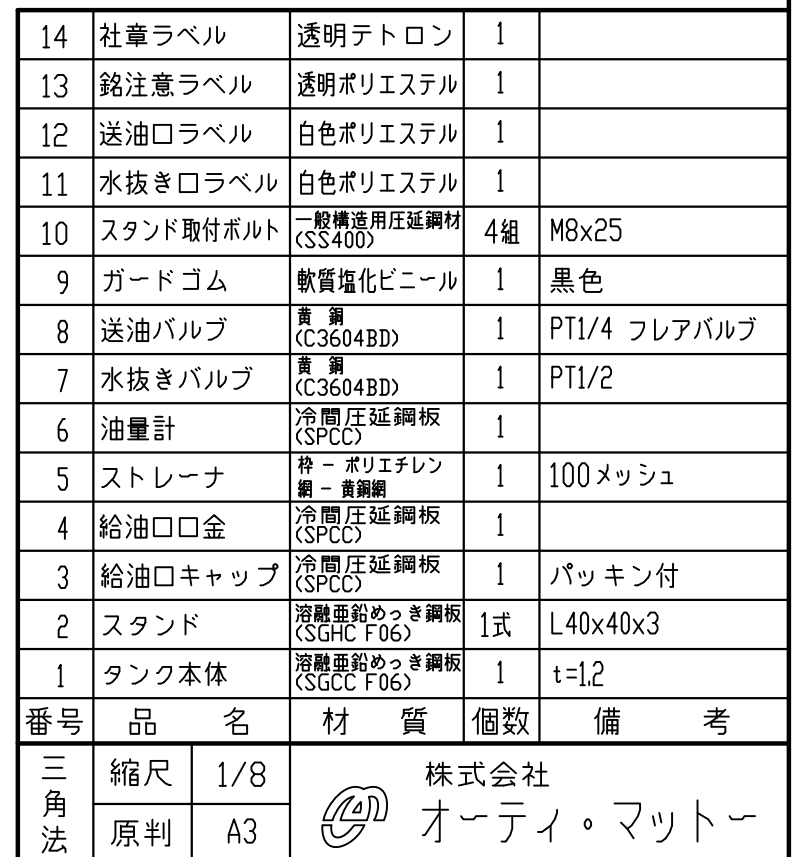 14 社章ラベル 透明テトロン 1
13 銘注意ラベル 透明ポリエステル 1
12 送油口ラベル 白色ポリエステル 1
11 水抜き口ラベル 白色ポリエステル 1
10 スタンド取付ボルト 一般構造用圧延鋼材 (SS400) 4組 M8x25
9 ガードゴム 軟質塩化ビニール 1 黒色
8 送油バルブ 黄 銅 (C3604BD) 1 PT1/4 フレアバルブ
7 水抜きバルブ 黄 銅 (C3604BD) 1 PT1/2
6 油量計 冷間圧延鋼板 (SPCC) 1
5 ストレーナ 枠 - ポリエチレン 網 - 黄銅網 1 100メッシュ
4 給油口口金 冷間圧延鋼板 (SPCC) 1
3 給油口キャップ 冷間圧延鋼板 (SPCC) 1 パッキン付
2 スタンド 溶融亜鉛めっき鋼板 (SGHC F06) 1式 L40x40x3
1 タンク本体 溶融亜鉛めっき鋼板 (SGCC F06) 1 t=1.2
番号 品 名 材 質 個数 備 考
三角法
縮尺 1/8
原判 A3
株式会社
オーティ・マットー